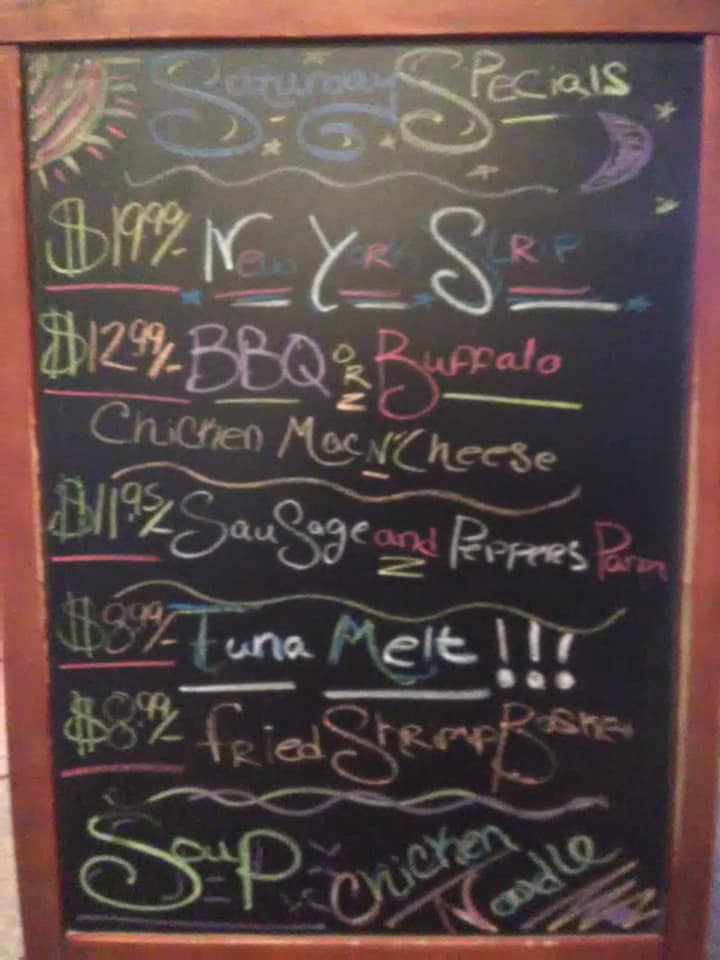 Saturday Specials
$19.99/- New York Strip
$12.99/- BBQ or Buffalo
Chicken Mac N' Cheese
$11.95/- Sausage and Peppers Parm
$8.99/- Tuna Melt !!!
$8.99/- Fried Shrimp Basket
Soup Chicken
Noodle